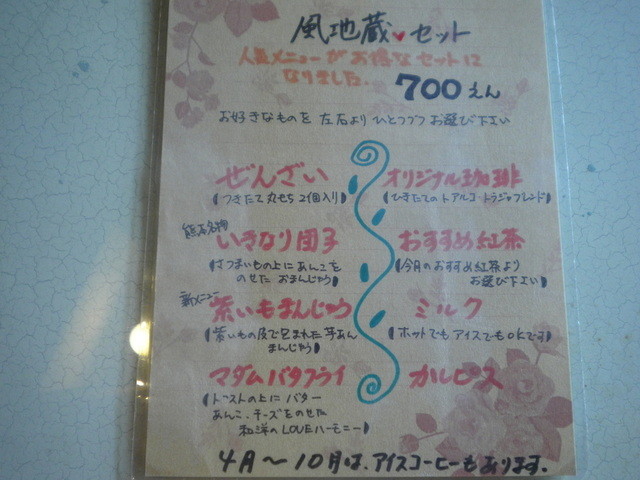 風地蔵♥セット
人気メニューがお得なセットに
なりました。
700えん
お好きなものを 左右より ひとつづつ お選び下さい
ぜんざい
(つきたて丸もち2個入り)
オリジナル珈琲
(ひきたてのトアルコ・トラジャブレンド)
熊本名物
いきなり団子
(さつまいもの上にあんこを
のせた おまんじゅう)
おすすめ紅茶
(今月のおすすめ紅茶より
お選び下さい)
新メニュー
紫いもまんじゅう
(紫いもの皮で包まれた芋あん
まんじゅう)
ミルク
(ホットでもアイスでもOKです)
マダムバタフライ
(トーストの上にバター
あんこ、チーズをのせた
和洋のLOVEハーモニー)
カルピス
4月〜10月は、アイスコーヒーもあります。